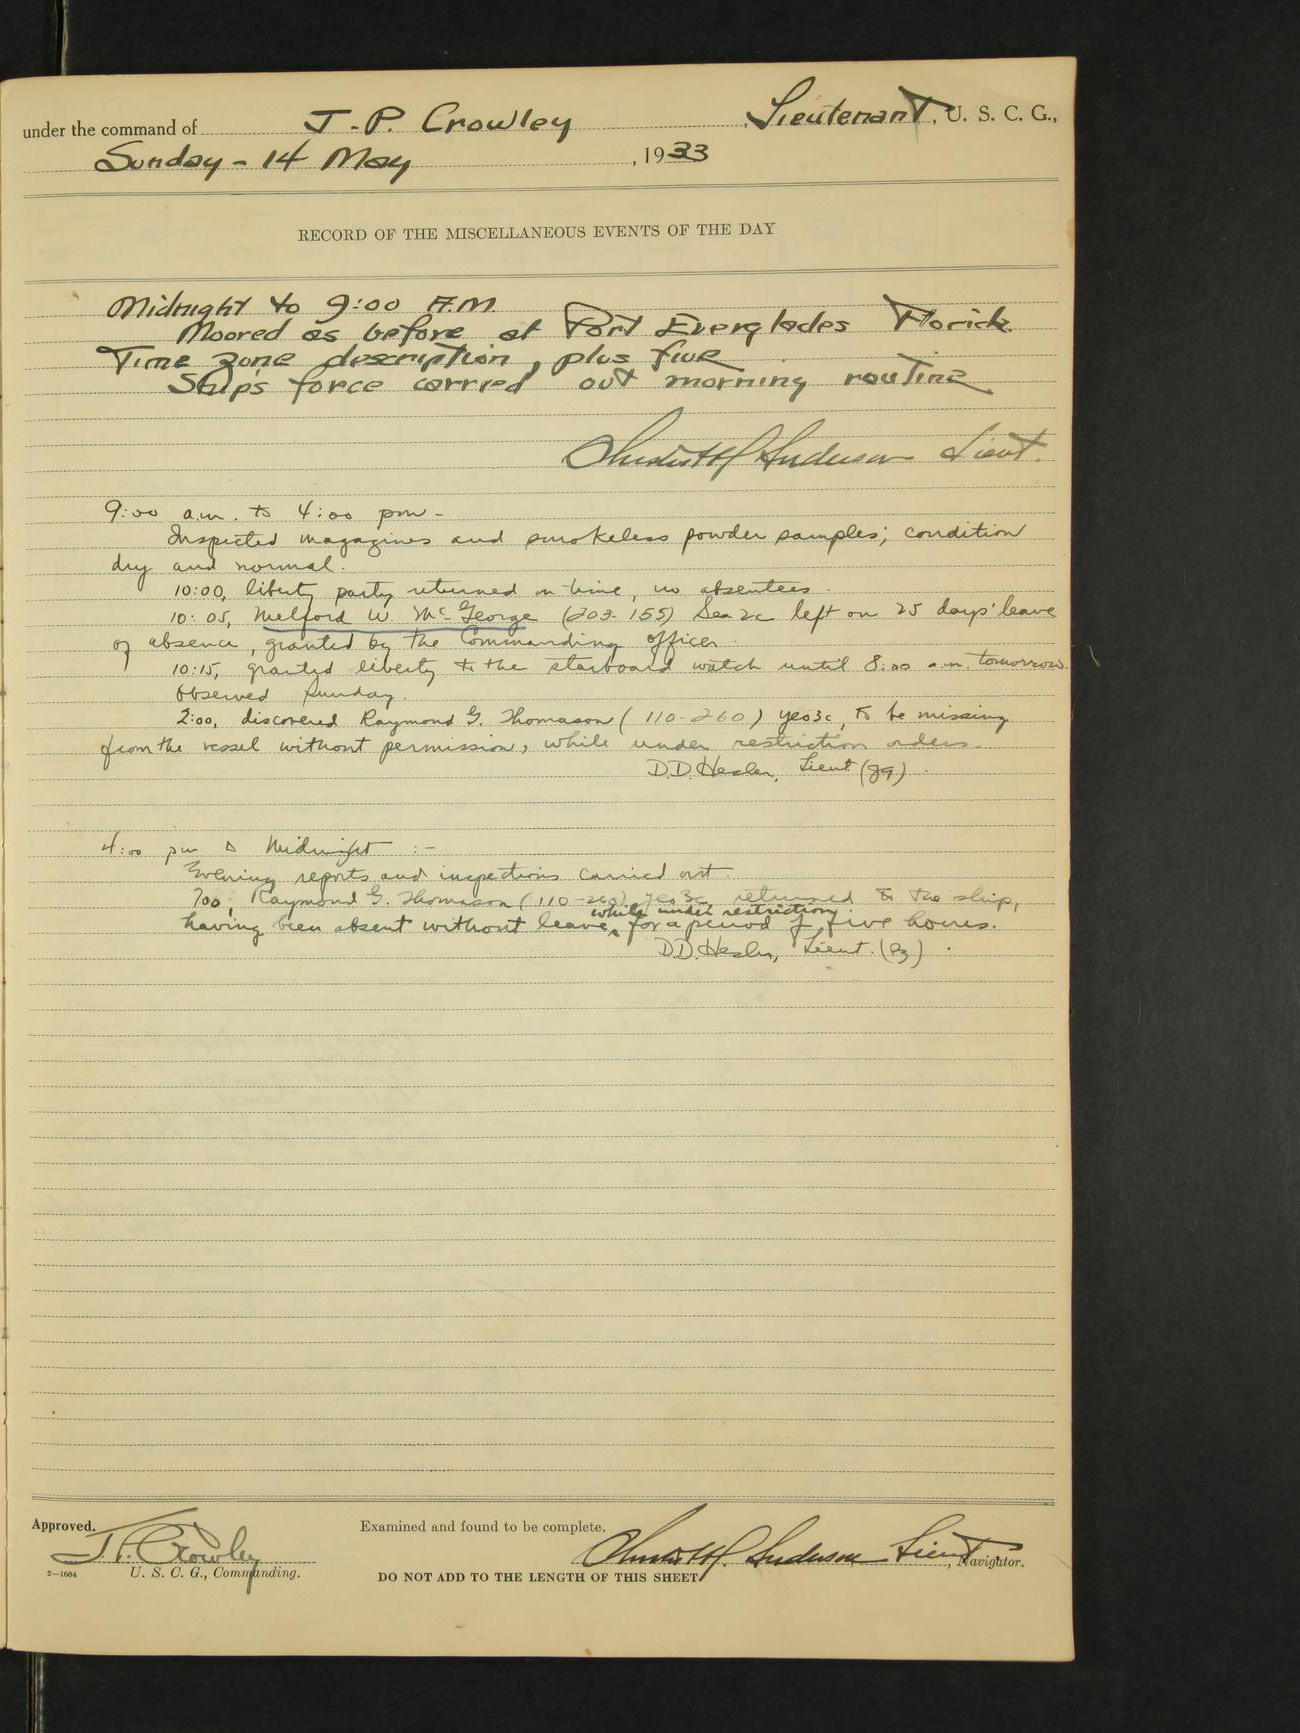 under the command of J. P. Crowley, Lieutenant, U. S. C. G.,
Sunday - 14 May, 1933
RECORD OF THE MISCELLANEOUS EVENTS OF THE DAY
Midnight to 9:00 A.M.
Moored as before at Port Everglades Florida
Time zone description, plus five
Ship's force carried out morning routine
Anderson Lieut.
9:00 a.m. to 4:00 pm -
Inspected magazines and smokeless powder samples; condition
dry and normal.
10:00, liberty party returned on time, no absentees.
10:05, Melford W. McGeorge (203-155) Sea2c left on 25 days' leave
of absence, granted by the Commanding officer.
10:15, granted liberty to the starboard watch until 8:00 a.m. tomorrow.
Observed Sunday.
2:00, discovered Raymond G. Thomason (110-260) yeo3c, to be missing
from the vessel without permission, while under restriction orders.
D.D. Hesler, Lieut (jg).
4:00 pm to Midnight :-
Evening reports and inspections carried out.
700, Raymond G. Thomason (110-260) yeo3c, returned to the ship,
having been absent without leave, while under restriction, for a period of five hours.
D.D. Hesler, Lieut. (jg).
Approved.
J. P. Crowley
U. S. C. G., Commanding.
2—1664
Examined and found to be complete.
Anderson Lieut, Navigator.
DO NOT ADD TO THE LENGTH OF THIS SHEET